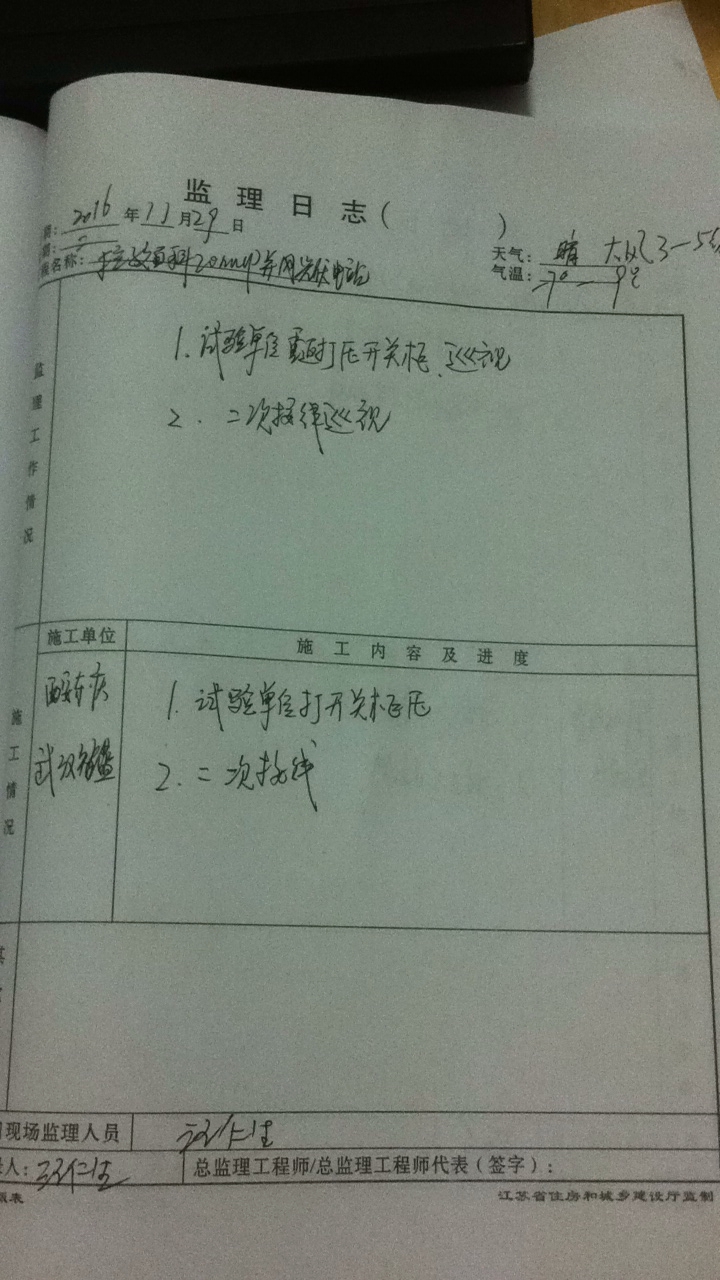 监理日志( )
期: 2016 年 11 月 29 日
期: 二
天气: 晴 大风3-5级
名称: 20MWP并网光伏电站
气温: 7°-9℃
监理工作情况
1. 试验单位 打压开关柜、巡视
2. 二次接线巡视
施工单位
施工内容及进度
施工情况
1. 试验单位打开关柜压
武汉
2. 二次接线
其
现场监理人员
人:
总监理工程师/总监理工程师代表(签字):
表
江苏省住房和城乡建设厅监制